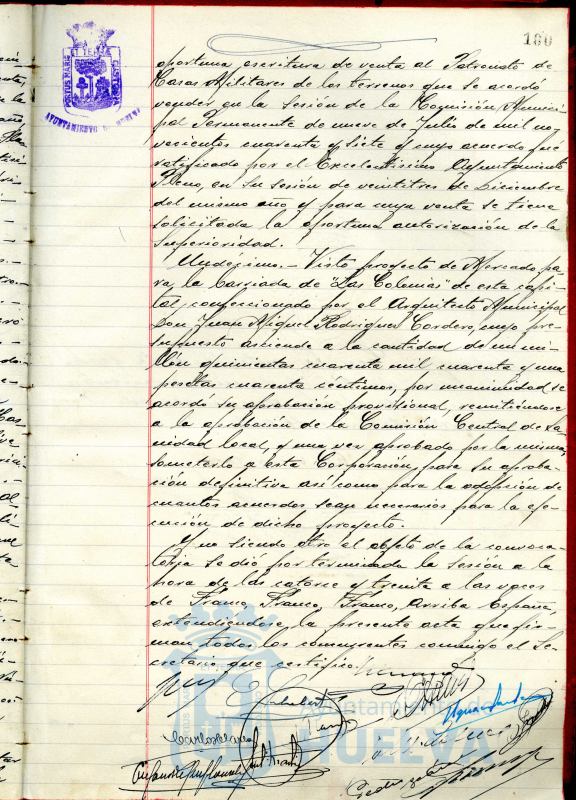 180
PORTUS MARIS ET TERRAE CUSTODIA
AYUNTAMIENTO DE HUELVA
oportuna escritura de venta al Patronato de
Casas Militares de los terrenos que se acordó
vender, en la sesión de la Comisión Munici-
pal Permanente de nueve de Julio de mil no-
vecientos cuarenta y siete y cuyo acuerdo fué
ratificado por el Excelentísimo Ayuntamiento
Pleno, en su sesión de veintitres de Diciembre
del mismo año y para cuya venta se tiene
solicitada la oportuna autorización de la
Superioridad.
Undécimo.- Visto proyecto de Mercado pa-
ra la barriada de "Las Colonias" de esta capi-
tal confeccionado por el Arquitecto Municipal
Don Juan Miguel Rodriguez Cordero, cuyo pre-
supuesto asciende a la cantidad de un mi-
llón quinientas cuarenta mil, cuarenta y una
pesetas cuarenta centimos, por unanimidad se
acordó su aprobación provisional, remitiendose
a la aprobación de la Comisión Central de Sa-
nidad local, y una vez aprobado por la misma,
someterlo a esta Corporación, para su aproba-
ción definitiva así como para la adopción de
cuantos acuerdos sean necesarios para la eje-
cución de dicho proyecto.
Y no siendo otro el objeto de la convoca-
toria se dió por terminada la sesión a la
hora de las catorce y treinta a las voces
de Franco, Franco, Franco, Arriba España,
extendiendose la presente acta que fir-
man todos los concurrentes conmigo el Se-
cretario que certifico.
Ayuntamiento de
HUELVA